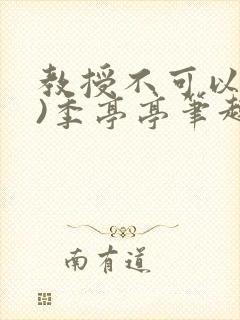 教授不可以
)季亭亭笔趣
南有道